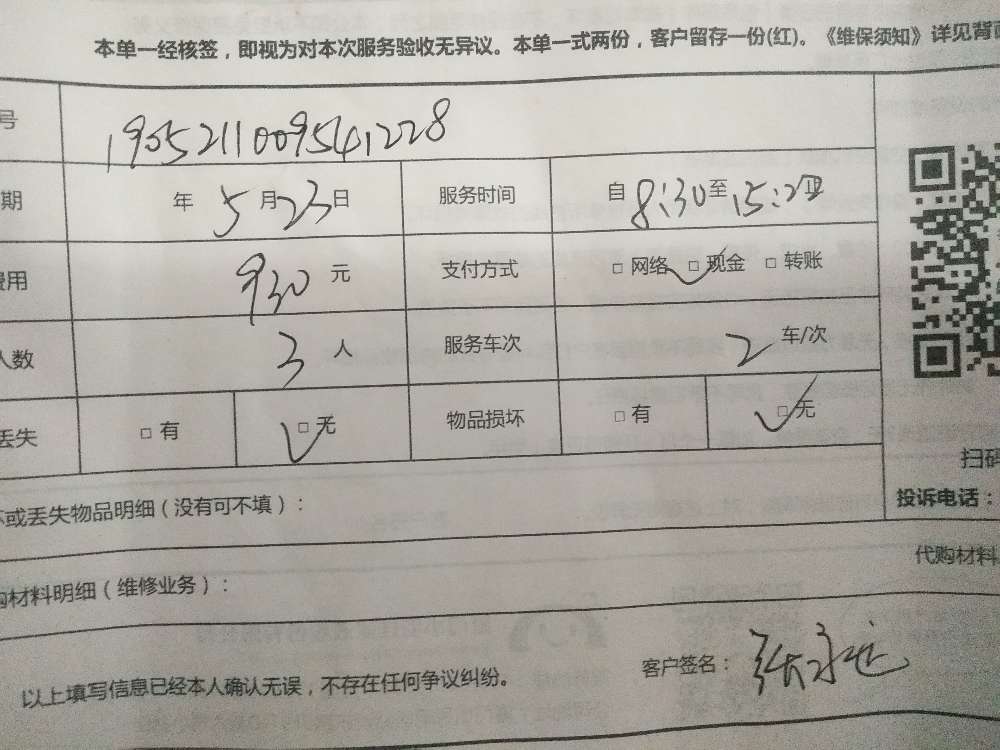 本单一经核签，即视为对本次服务验收无异议。本单一式两份，客户留存一份(红)。《维保须知》详见背面
号 1905211009541228
期 年 5 月 23 日 服务时间 自 8:30 至 15:22 止
费用 930 元 支付方式 □ 网络 □ 现金 □ 转账
人数 3 人 服务车次 2 车/次
丢失 □ 有 □ 无 物品损坏 □ 有 □ 无
扫码
坏或丢失物品明细（没有可不填）：
投诉电话：
购材料明细（维修业务）：
代购材料
以上填写信息已经本人确认无误，不存在任何争议纠纷。 客户签名：张永